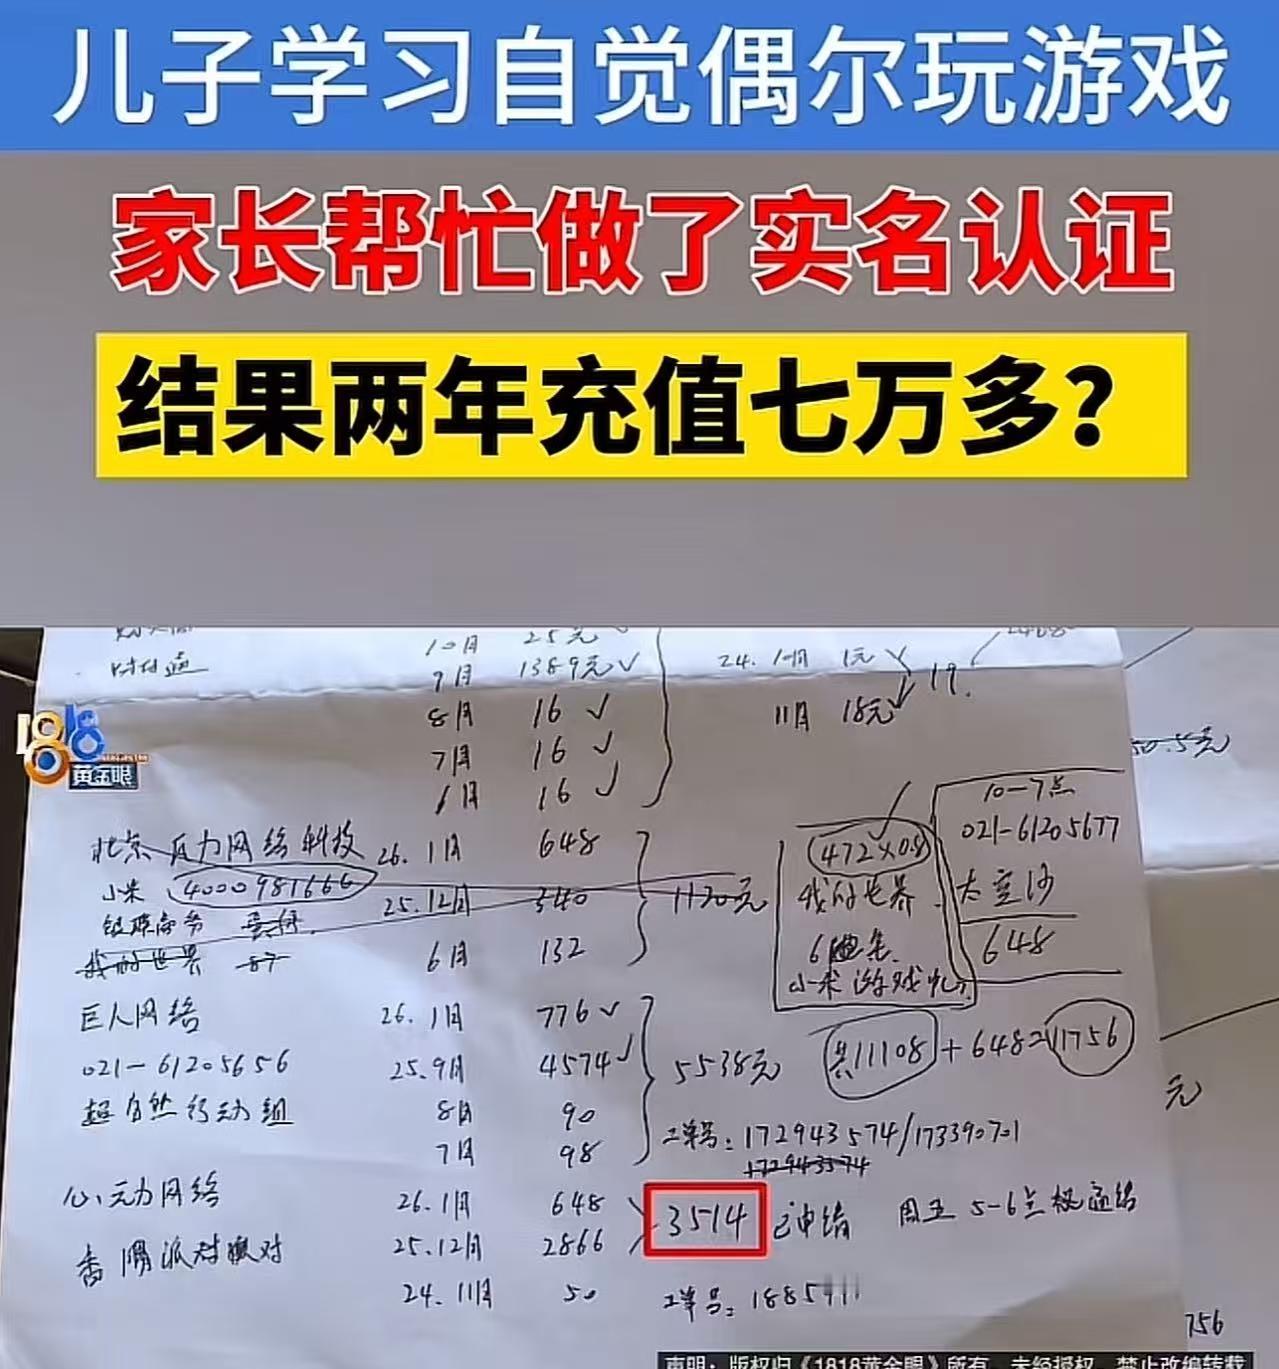 儿子学习自觉偶尔玩游戏
家长帮忙做了实名认证
结果两年充值七万多?
10月 25元
9月 1389元 ✓
24. 10月 1元 ✓
8月 16 ✓
11月 18元 ✓
19.
7月 16 ✓
6月 16 ✓
50.5元
1818
黄金眼
10-7点
021-61205677
太空沙
648
北京瓦力网络科技 26.1月 648
小米 4000981666 25.12月 340
1120元
银联商务
我的世界 87
6月 132
472×0.8 ✓
我的世界
小米游戏
巨人网络 26.1月 776 ✓
021-61205656 25.9月 4574 ✓
超自然行动组 8月 90
7月 98
5538元
共11108+648=11756
元
工单号:172943574/173390701
172943574
心动网络 26.1月 648
香肠派对 25.12月 2866
3514 已申请
周五 5-6点
24.11月 50
工单号:1885911
756
声明:版权归《1818黄金眼》所有,未经授权,禁止改编转载